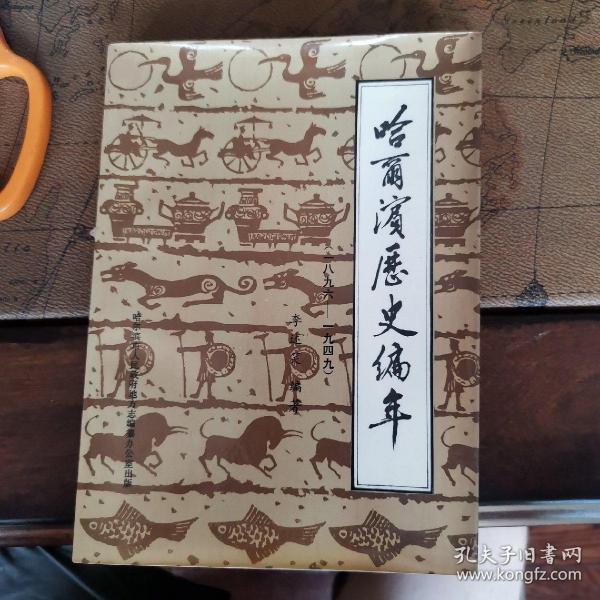 哈爾濱歷史编年
(一八九六——一九四九)
李述笑 编著
哈尔滨市人民政府地方志编纂办公室出版
Greenland
孔夫子旧书网
www.kongfz.com